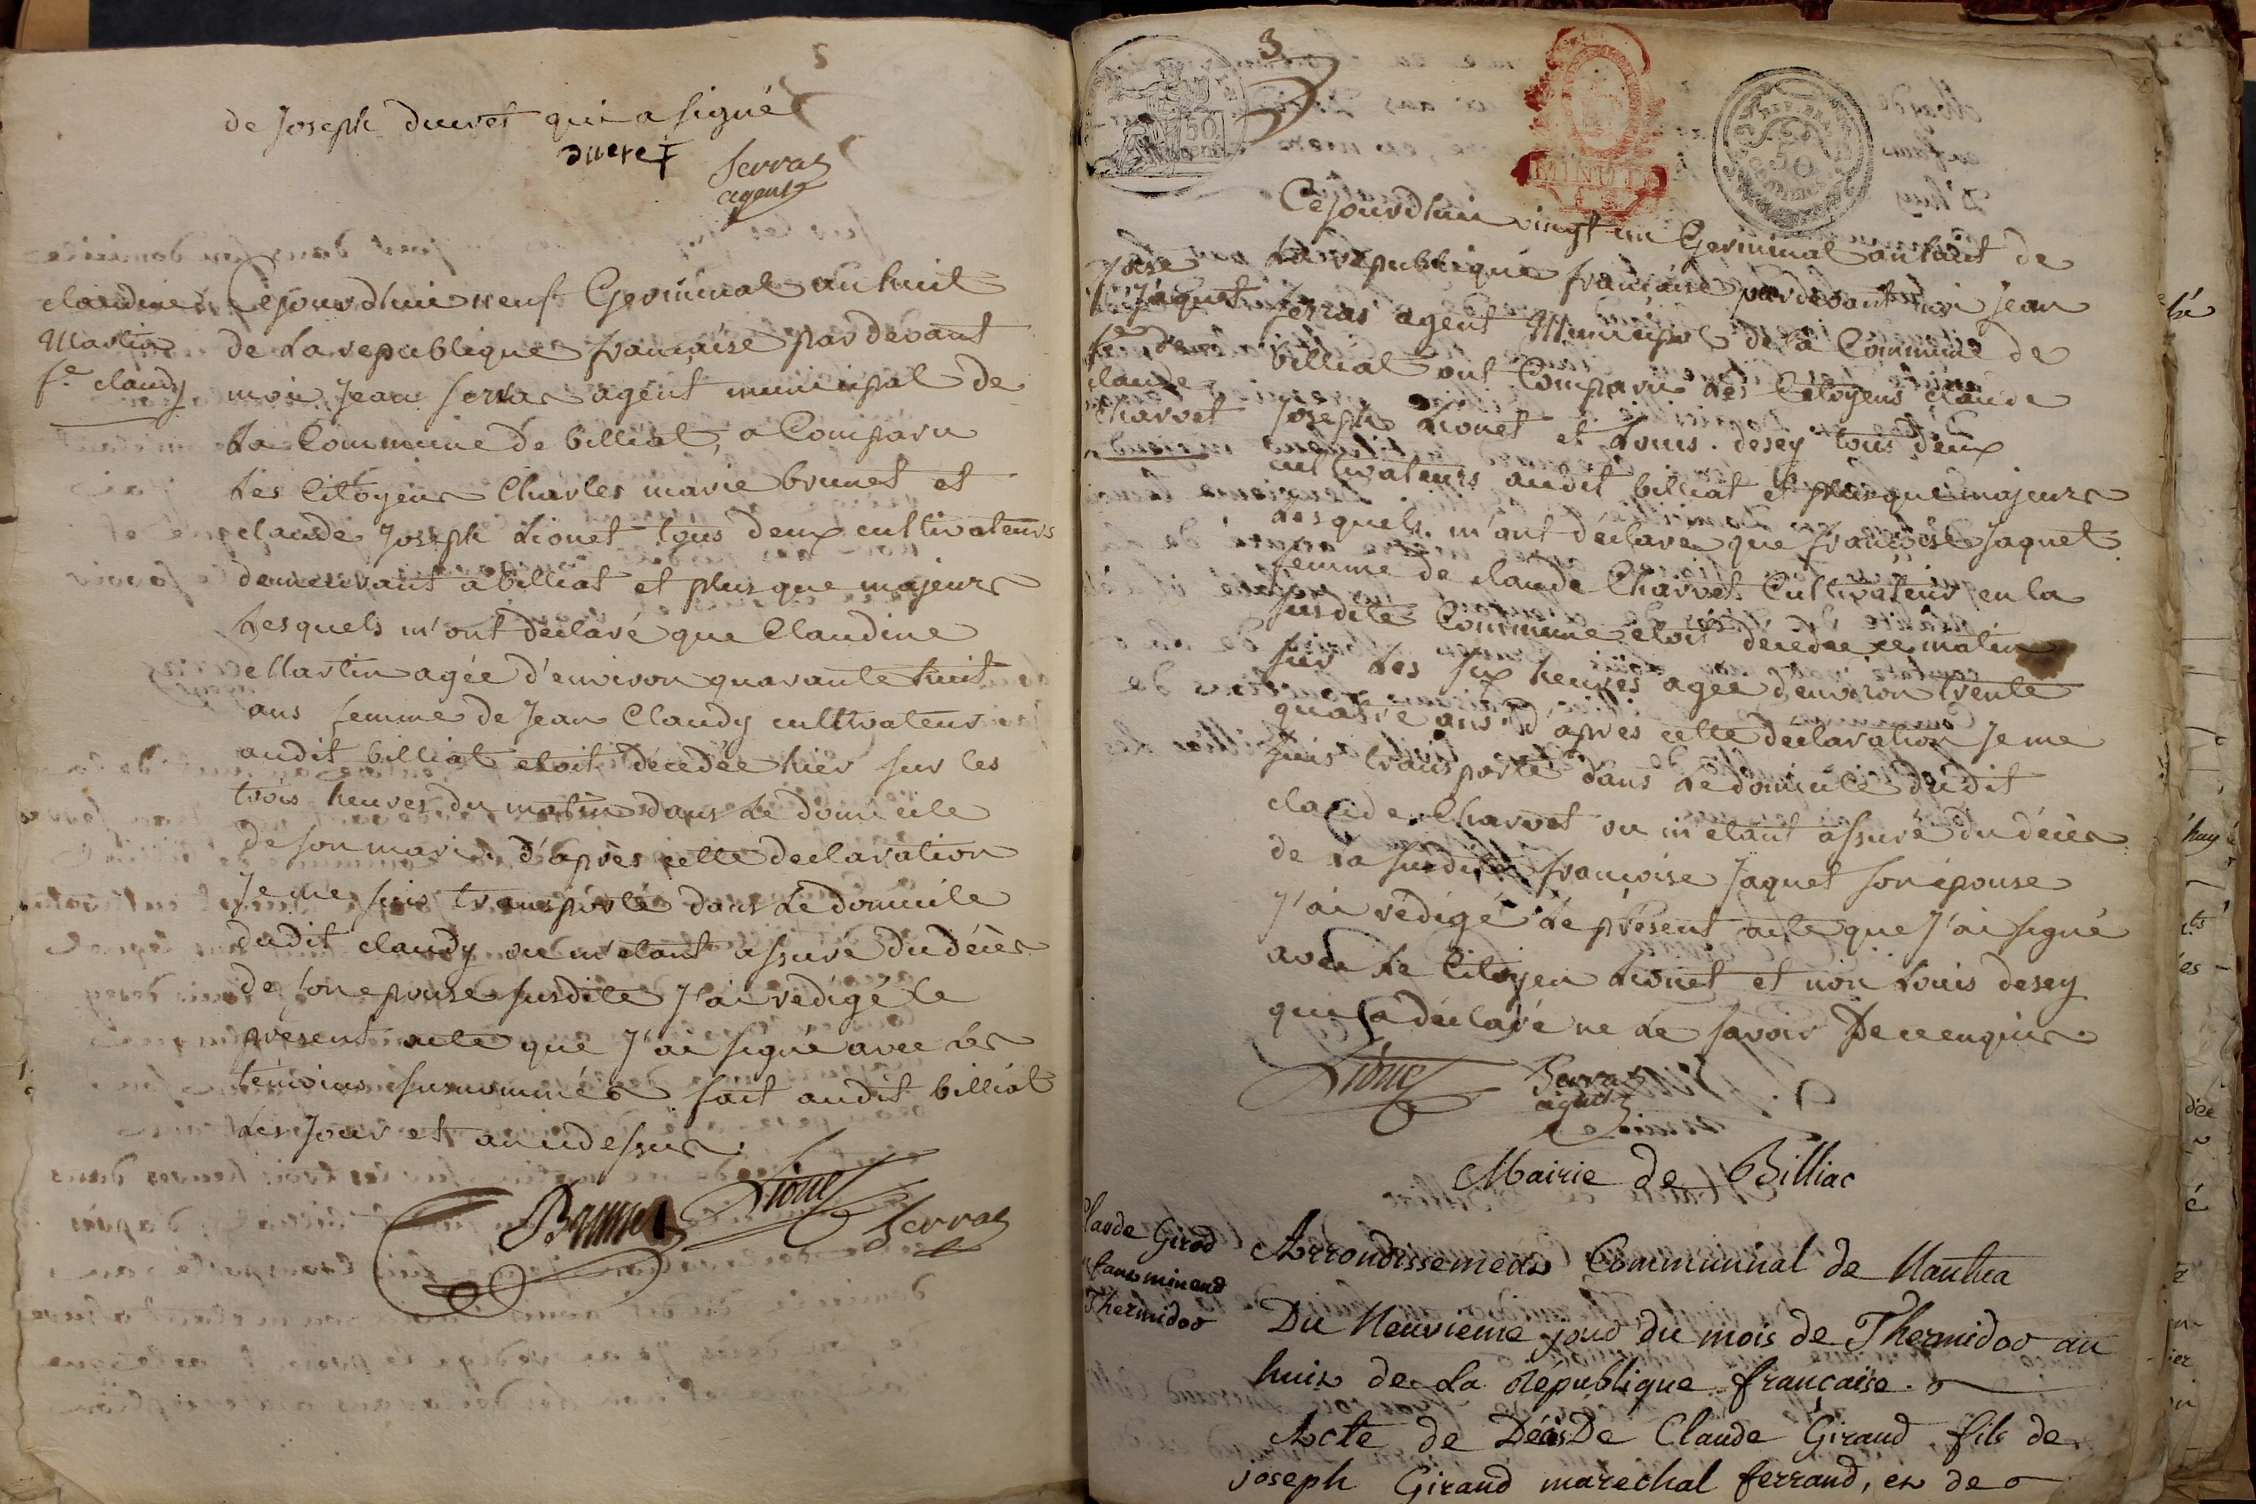 de Joseph ducret qui a signé
ducret
Serras
agent
claudine
Martin
fe. claudy
Cejourdhui neuf Germinal an huit
de la republique francaise pardevant
moi Jean serras agent municipal de
la Commune de billiat, a Comparu
les Citoyens Charles marie brunet et
claude Joseph Lionet tous deux cultivateurs
demeurant a billiat et plus que majeurs
Lesquels m'ont déclaré que Claudine
Martin agée d'environ quarante huit
ans femme de Jean Claudy cultivateur
audit billiat etoit décedée hier sur les
trois heures du matin dans le domicile
de son mari, d'après cette declaration
Je me suis transporté dans le domicile
dudit claudy ou m'etant assuré du décès
de son epouse susdite J'ai rédigé le
présent acte que J'ai signé avec les
témoins susnommés fait audit billiat
les Jour et an cidessus.
Brunet Lionet
Serras
3
50
MINUTE
50
Jaquet
fe. de
claude
Charvet
Cejourdhui vingt un Germinal an huit de
la republique francaise pardevant moi Jean
serras agent Municipal de la Commune de
billiat ont Comparu les Citoyens claude
Joseph Lionet et Louis desey tous deux
cultivateurs audit billiat et plusque majeurs
Lesquels m'ont déclaré que françoise Jaquet
femme de claude Charvet Cultivateur en la
susdite Commune etoit décedée ce matin
sur les six heures agée d'environ trente
quatre ans d'apres cette déclaration Je me
suis transporté dans le domicile dudit
claude Charvet ou m'etant assuré du décès
de la susdite francoise Jaquet son épouse
J'ai rédigé le présent acte que J'ai signé
avec le Citoyen Lionet et non Louis desey
qui a déclaré ne le savoir De ce enquis.
Lionet
Serras
agent
Mairie de Billiac
Claude Girod
Thermidor
Arrondissement Communnal de Nantua
Du Neuvieme jour du mois de Thermidor an
huit de La République française.
Acte de Décès De Claude Giraud fils de
joseph Giraud marechal ferrand, et de